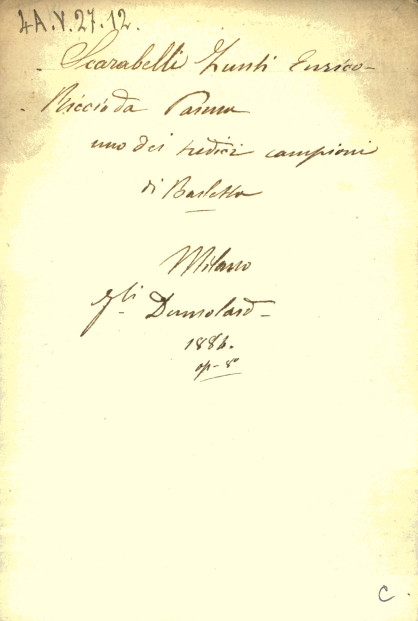 4A.V.27.12.
Scarabelli Zunti Enrico-
Riccio da Parma
uno dei tredici campioni
di Barletta
Milano
Gli Dumolard-
1884.
op- 8°
C.